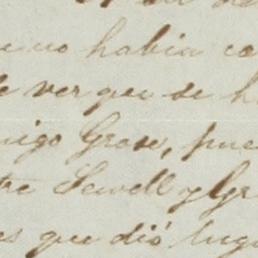 no habia
ver que se
Grose, pue
tre Sewell y Gr
es que dió lug